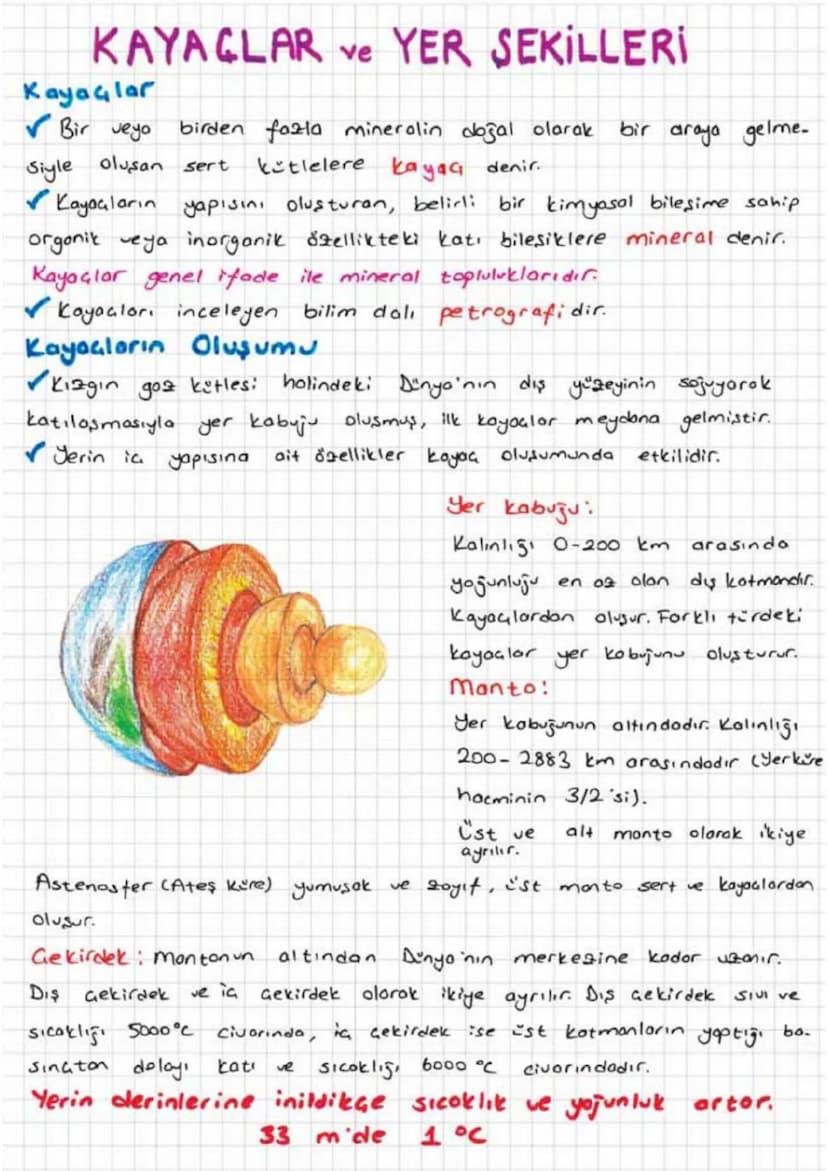 KAYAÇLAR ve YER ŞEKİLLERİ
Kayaçlar
✓ Bir veya birden fazla mineralin doğal olarak bir araya gelme-
siyle oluşan sert kütlelere kayaç denir.
✓ Kayaçların yapısını oluşturan, belirli bir kimyasal bileşime sahip
organik veya inorganik özellikteki katı bileşiklere mineral denir.
Kayaçlar genel ifade ile mineral topluluklarıdır.
✓ Kayaçları inceleyen bilim dalı petrografi dir.
Kayaçların Oluşumu
✓ Kızgın gaz kütlesi halindeki Dünya'nın dış yüzeyinin soğuyarak
katılaşmasıyla yer kabuğu oluşmuş, ilk kayaçlar meydana gelmiştir.
✓ Yerin iç yapısına ait özellikler kayaç oluşumunda etkilidir.
Yer kabuğu:
Kalınlığı 0-200 km arasında
yoğunluğu en az olan dış katmandır.
Kayaçlardan oluşur. Farklı türdeki
kayaçlar yer kabuğunu oluşturur.
Manto:
Yer kabuğunun altındadır. Kalınlığı
200-2883 km arasındadır (Yerküre
hacminin 3/2'si).
Üst ve alt manto olarak ikiye
ayrılır.
Astenosfer (Ateş küre) yumuşak ve zayıf, üst manto sert ve kayaçlardan
oluşur.
Çekirdek: Mantonun altından Dünya'nın merkezine kadar uzanır.
Dış çekirdek ve iç çekirdek olarak ikiye ayrılır. Dış çekirdek sıvı ve
sıcaklığı 5000°C civarında, iç çekirdek ise üst katmanların yaptığı ba-
sınçtan dolayı katı ve sıcaklığı 6000 °C civarındadır.
Yerin derinlerine inildikçe sıcaklık ve yoğunluk artar.
33 m'de 1 °C